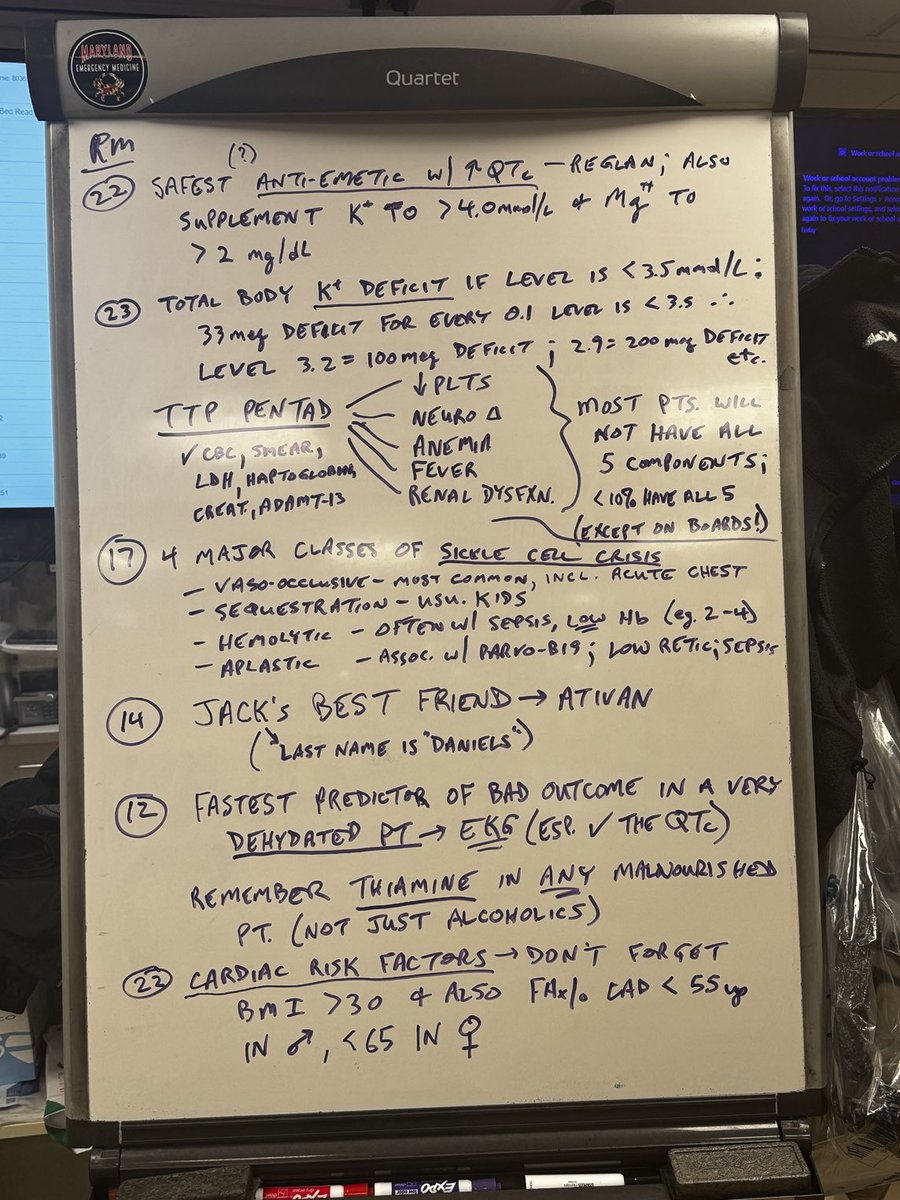 MARYLAND
EMERGENCY MEDICINE
Quartet
Rm
(?)
22 SAFEST ANTI-EMETIC W/ ↑QTc – REGLAN; ALSO
SUPPLEMENT K+ TO >4.0mmol/L & Mg++ TO
>2 mg/dL
23 TOTAL BODY K+ DEFICIT IF LEVEL IS <3.5 mmol/L:
33meq DEFICIT FOR EVERY 0.1 LEVEL IS <3.5 ∴
LEVEL 3.2 = 100meq DEFICIT; 2.9 = 200 meq DEFICIT
etc.
TTP PENTAD
✓CBC, SMEAR,
LDH, HAPTOGLOBIN,
CREAT, ADAMT-13
↓PLTS
NEURO Δ
ANEMIA
FEVER
RENAL DYSFXN.
MOST PTS. WILL
NOT HAVE ALL
5 COMPONENTS;
<10% HAVE ALL 5
(EXCEPT ON BOARDS!)
17 4 MAJOR CLASSES OF SICKLE CELL CRISIS
– VASO-OCCLUSIVE – MOST COMMON, INCL. ACUTE CHEST
– SEQUESTRATION – USU. KIDS
– HEMOLYTIC – OFTEN W/ SEPSIS, LOW Hb (eg. 2-4)
– APLASTIC – ASSOC. W/ PARVO-B19; LOW RETIC; SEPSIS
14 JACK'S BEST FRIEND → ATIVAN
("LAST NAME IS "DANIELS")
12 FASTEST PREDICTOR OF BAD OUTCOME IN A VERY
DEHYDATED PT → EKG (ESP. ✓ THE QTc)
REMEMBER THIAMINE IN ANY MALNOURISHED
PT. (NOT JUST ALCOHOLICS)
22 CARDIAC RISK FACTORS → DON'T FORGET
BMI >30 & ALSO FHx/o CAD <55 yo
IN ♂, <65 IN ♀
Bed Read
Work or school account problem
To fix this, select this notification
Friday
EXPO